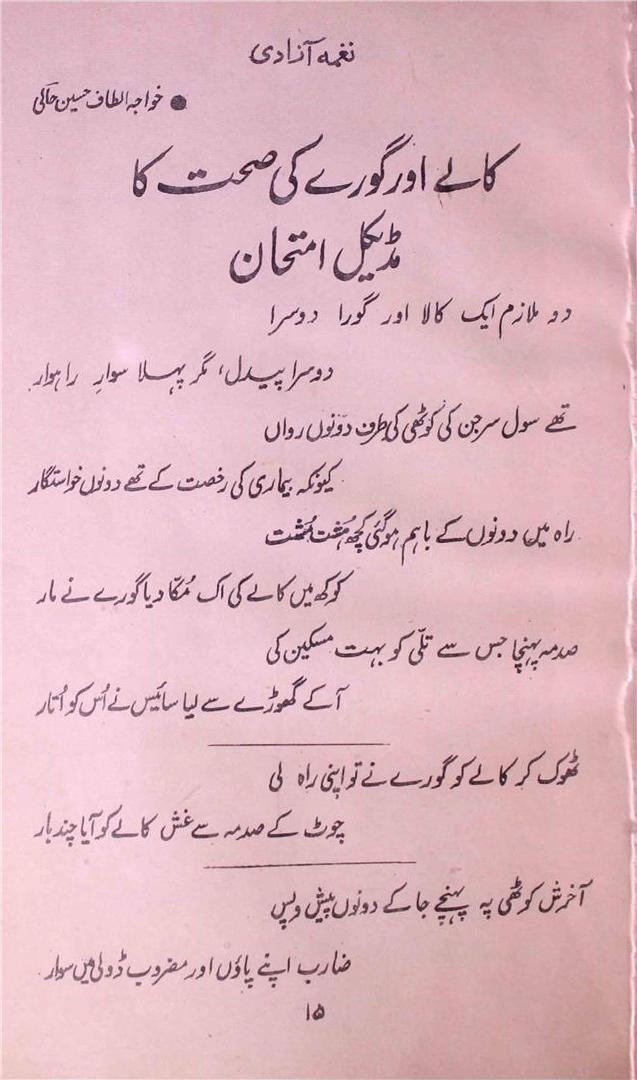 نغمہ آزادی
● خواجہ الطاف حسین حالی
کالے اور گورے کی صحت کا
مڈیکل امتحان
دو ملازم ایک کالا اور گورا دوسرا
دوسرا پیدل، مگر پہلا سوارِ راہوار
تھے سول سرجن کی کوٹھی کی طرف دونوں رواں
کیونکہ بیماری کی رخصت کے تھے دونوں خواستگار
راہ میں دونوں کے باہم ہوگئی کچھ ہُشت مُشت
کوکھ میں کالے کی اک مُکّا دیا گورے نے مار
صدمہ پہنچا جس سے تلّی کو بہت مسکین کی
آکے گھوڑے سے لیا سائیس نے اُس کو اُتار
ٹھوک کر کالے کو گورے نے تو اپنی راہ لی
چوٹ کے صدمہ سے غش کالے کو آیا چند بار
آخرش کوٹھی پہ پہنچے جاکے دونوں پیش و پس
ضارب اپنے پاؤں اور مضروب ڈولی میں سوار
۱۵